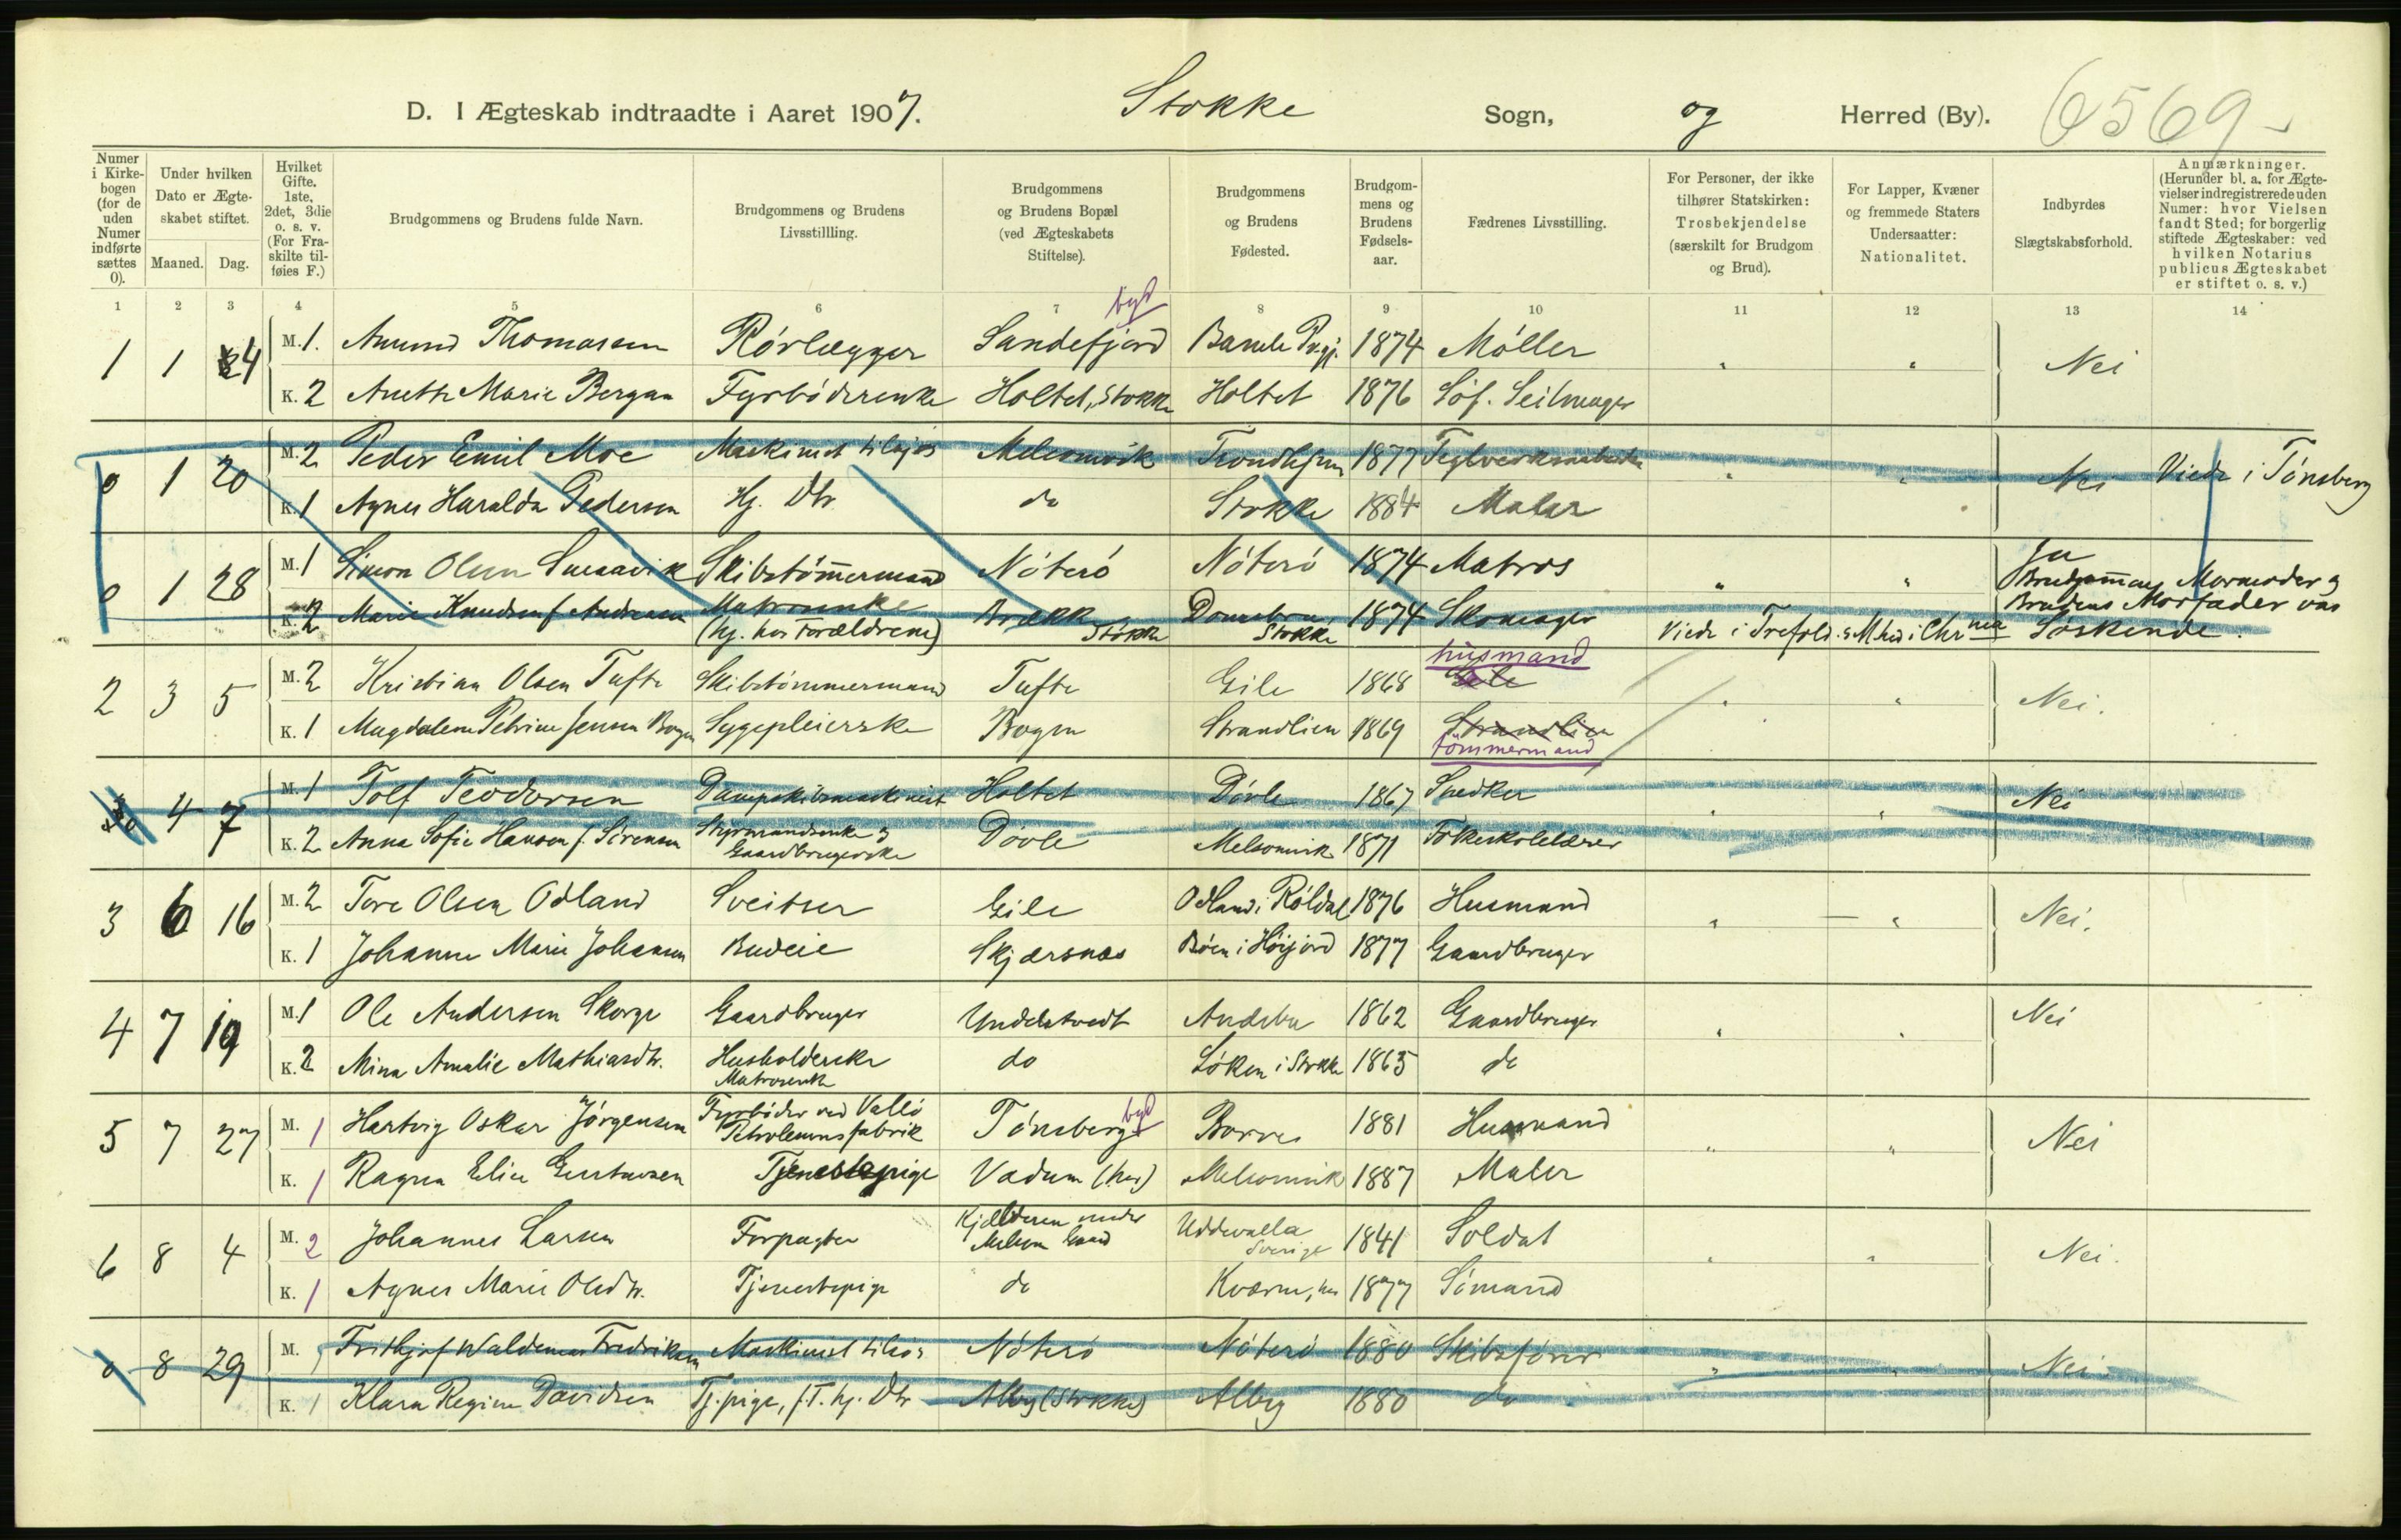 D. I Ægteskab indtraadte i Aaret 1907. Stokke Sogn, og Herred (By). 6569
Numer i Kirkebogen (for de uden Numer indførte sættes 0).
Under hvilken Dato er Ægteskabet stiftet.
Maaned. Dag.
Hvilket Gifte. 1ste, 2det, 3die o. s. v. (For Fraskilte tilføies F.)
Brudgommens og Brudens fulde Navn.
Brudgommens og Brudens Livsstillling.
Brudgommens og Brudens Bopæl (ved Ægteskabets Stiftelse).
Brudgommens og Brudens Fødested.
Brudgommens og Brudens Fødselsaar.
Fædrenes Livsstilling.
For Personer, der ikke tilhører Statskirken: Trosbekjendelse (særskilt for Brudgom og Brud).
For Lapper, Kvæner og fremmede Staters Undersaatter: Nationalitet.
Indbyrdes Slægtskabsforhold.
Anmærkninger. (Herunder bl. a. for Ægtevielser indregistrerede uden Numer: hvor Vielsen fandt Sted; for borgerlig stiftede Ægteskaber: ved hvilken Notarius publicus Ægteskabet er stiftet o. s. v.)
1 2 3 4 5 6 7 8 9 10 11 12 13 14
byd
1 1 24 M. 1. Amund Thomassen Rörlægger Sandefjord Bamle Prgj. 1874 Möller " " Nei
K. 2 Anette Marie Bergan Fyrböderenke Holtet, Stokke Holtet 1876 Söf. Seilmager
0 1 20 M. 2 Peder Emil Moe Maskinist tilsjös Melsomvik Trondhjem 1877 Teglverksarbeider " " Nei Viede i Tönsberg
K. 1 Agnes Haralda Pedersen Hj. Dtr do Stokke 1884 Maler
0 1 28 M. 1 Simon Olsen Smaavik Skibstömmermand Nöterö Nöterö 1874 Matros " " Ja
Brudgommens Mormoder og
K. 2 Marie Knudsen f. Andresen Matrosenke (hj. hos Forældrene) Brække Stokke Stokke 1874 Skomager Brudens Morfader var
Söskende.
2 3 5 M. 2 Kristian Olsen Tufte Skibstömmermand Tufte Gile 1868 husmand Gile " " Nei.
K. 1 Magdalene Petrine Jensen Bogen Sygepleierske Bogen Strandlien 1869 Strandlien tömmermand
4 7 M. 1 Tolf Teodorsen Dampskibsmaskinist Holtet Dövle 1867 Snedker " " Nei
K. 2 Anna Sofie Hansen f. Sörensen Styrmandsenke og Gaardbrugerske Dövle Melsomvik 1871 Folkeskolelærer
3 6 16 M. 2 Tore Olsen Odland Sveitser Gile Odland i Röldal 1876 Husmand " " Nei.
K. 1 Johanne Marie Johansen Budeie Skjærsnæs Böen i Höijord 1877 Gaardbruger
4 7 19 M. 1 Ole Andersen Skorge Gaardbruger Undelstvedt Andebu 1862 Gaardbruger " " Nei
K. 2 Mina Amalie Mathiasdtr. Husholderske Matrosenke do Löken i Stokke 1865 do
byd
5 7 27 M. 1 Hartvig Oskar Jörgensen Fyrböder ved Vallö Petroleumsfabrik Tönsberg Borre 1881 Husmand " " Nei
K. 1 Ragna Elise Gustavsen Tjenestepige Vadum (her) Melsomvik 1887 Maler
6 8 4 M. 2 Johannes Larsen Forpagter Kjelderen under Melsom Gaard Uddevalla Sverige 1841 Soldat " " Nei.
K. 1 Agnes Marie Olsdtr. Tjenestepige do Kværne, her 1877 Sömand
0 8 29 M. 1 Frithjof Waldemar Fredriksen Maskinist tilsös Nöterö Nöterö 1880 Skibsförer " " Nei.
K. 1 Klara Regine Davidsen Tj.pige, f.T. hj. Dtr Alby (Stokke) Alby 1880 do